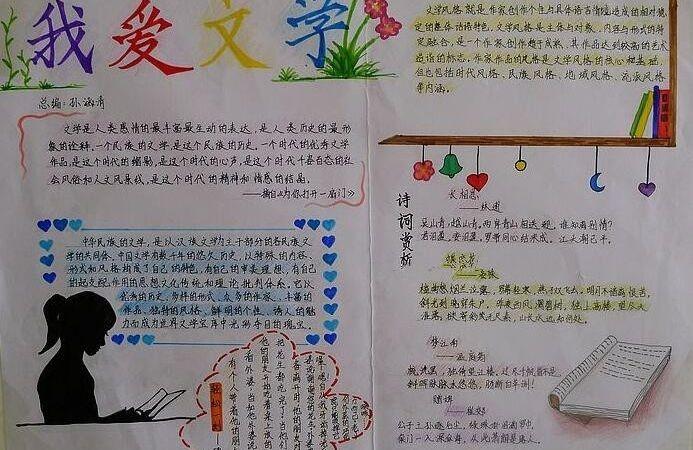 我爱文学
总编：孙涵清
文学是人类感情的最丰富最生动的表达，是人类历史的最形
象的诠释，一个民族的文学，是这个民族的历史，一个时代的优秀文学
作品，是这个时代的缩影，是这个时代的心声，是这个时代千姿百态的社
会风俗和人文风景线，是这个时代的精神和情感的结晶。
——摘自《为你打开一扇门》
中华民族的文学，是以汉族文学为主干部分的各民族文
学的共同体，中国文学有数千年的悠久历史，以特殊的内容、
形式和风格构成了自己的特色，有自己的审美理想，有自己
的起支配作用的思想文化传统和理论批判体系。它以
优秀的历史、多样的形式、众多的作家、丰富的
作品、独特的风格、鲜明的个性、诱人的魅
力而成为世界文学宝库中光彩夺目的瑰宝。
文学风格，就是作家创作个性与具体话语情境造成的相对稳
定的整体话语特色，文学风格是主体与对象、内容与形式的特
定融合，是一个作家创作趋于成熟、其作品达到较高的艺术
造诣的标志。作家作品的风格是文学风格的核心和基础，
但也包括时代风格、民族风格、地域风格、流派风格
等内涵。
诗词赏析
长相思
——林逋
吴山青，越山青。两岸青山相送迎，谁知离别情？
君泪盈，妾泪盈，罗带同心结未成，江头潮已平。
蝶恋花
——晏殊
槛菊愁烟兰泣露，罗幕轻寒，燕子双飞去，明月不谙离恨苦，
斜光到晓穿朱户。昨夜西风凋碧树，独上高楼，望尽天
涯路，欲寄彩笺无尺素，山长水远知何处。
梦江南
——温庭筠
梳洗罢，独倚望江楼，过尽千帆皆不是，
斜晖脉脉水悠悠，肠断白苹洲！
赠婢
——崔郊
公子王孙逐后尘，绿珠垂泪滴罗巾，
侯门一入深似海，从此萧郎是路人。